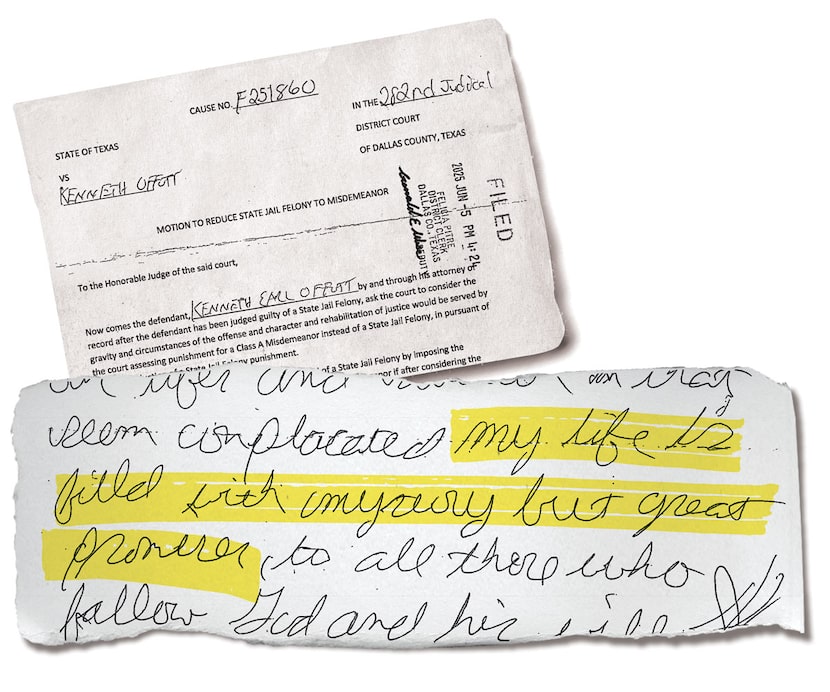 CAUSE NO. F251860
IN THE 282nd Judical
DISTRICT COURT
OF DALLAS COUNTY, TEXAS
STATE OF TEXAS
VS
KENNETH OFFUTT
MOTION TO REDUCE STATE JAIL FELONY TO MISDEMEANOR
FILED
2025 JUN -5 PM 4:24
FELICIA PITRE
DISTRICT CLERK
DALLAS CO., TEXAS
To the Honorable Judge of the said court,
Now comes the defendant, KENNETH EARL OFFUTT by and through his attorney of
record after the defendant has been judged guilty of a State Jail Felony, ask the court to consider the
gravity and circumstances of the offense and character and rehabilitation of justice would be served by
the court assessing punishment for a Class A Misdemeanor instead of a State Jail Felony, in pursuant of
of a State Jail Felony punishment.
of a State Jail Felony by imposing the
if after considering the
and
seem complacated my life is
filld with mysery but great
promises to all those who
fallow God and his will